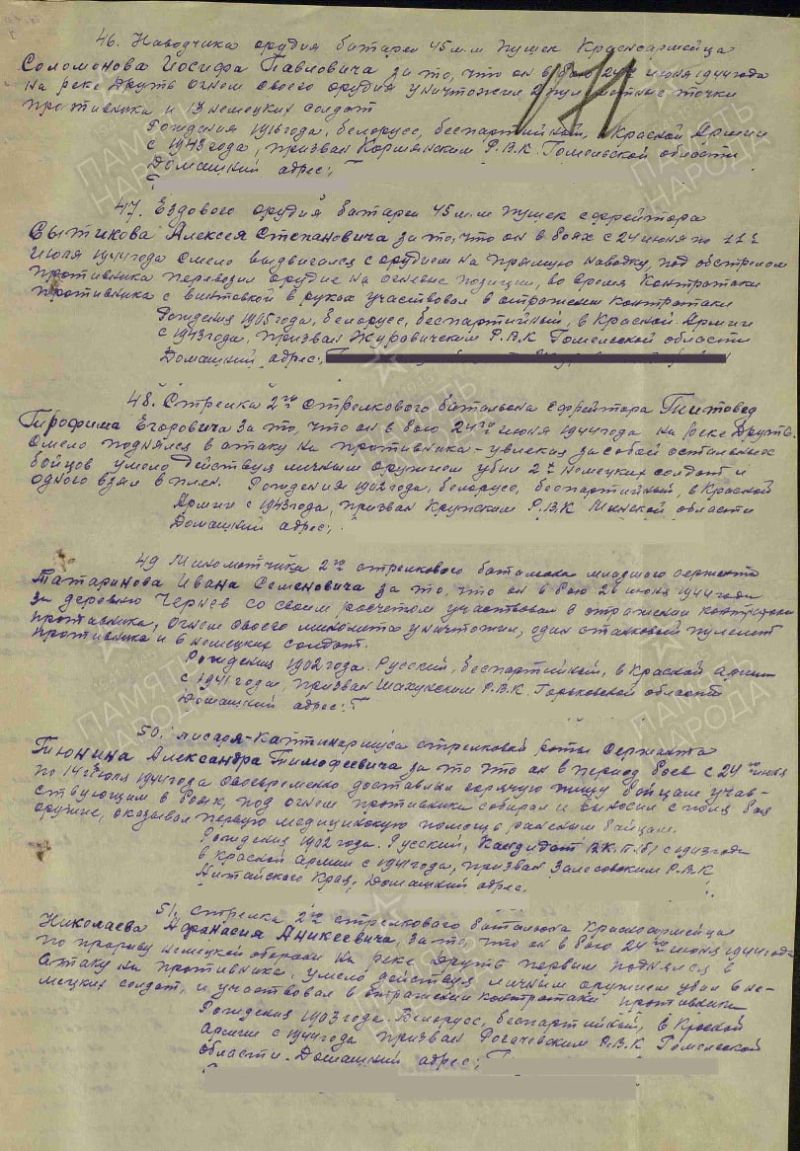 46. Наводчика орудия батареи 45 м.м пушек Красноармейца
Соломонова Иосифа Павловича за то, что он в бою 24го июня 1944 года
на реке Друть огнем своего орудия уничтожил 2 пулеметные точки
противника и 13 немецких солдат
Рождения 1916 года, белорус, беспартийный, в Красной Армии
с 1943 года, призван Кормянским Р.В.К. Гомельской области
Домашний адрес:
47. Ездового орудия батареи 45 м.м пушек ефрейтора
Сытикова Алексея Степановича за то, что он в боях с 24 июня по 11е
июля 1944 года смело выдвигался с орудием на прямую наводку, под обстрелом
противника перевозил орудие на огневые позиции, во время контратаки
противника с винтовкой в руках участвовал в отражении контратаки
Рождения 1905 года, белорус, беспартийный, в Красной Армии
с 1943 года, призван Журавичским Р.В.К Гомельской области
Домашний адрес:
48. Стрелка 2го стрелкового батальона ефрейтора
Трофима Егоровича за то, что он в бою 24го июня 1944 года на реке Друть.
Смело поднялся в атаку на противника - увлекая за собой остальных
бойцов умело действуя личным оружием убил 2х немецких солдат и
одного взял в плен. Рождения 1902 года, белорус, беспартийный, в Красной
Армии с 1943 года, призван Крупским Р.В.К Минской области
Домашний адрес:
49 Минометчика 2го стрелкового батальона младшего сержанта
Татаринова Ивана Семеновича за то, что он в бою 26 июня 1944 года
за деревню Чернев со своим расчетом участвовал в отражении контратаки
противника, огнем своего миномета уничтожил, один станковый пулемет
противника и 6 немецких солдат.
Рождения 1902 года. Русский, беспартийный, в Красной Армии
с 1941 года, призван Шахунским Р.В.К. Горьковской области
Домашний адрес:
50. писаря-каптинармуса стрелковой роты Сержанта
Тюнина Александра Тимофеевича за то что он в период боев с 24го июня
по 14е июля 1944 года своевременно доставлял горячую пищу бойцам учав-
ствующим в боях, под огнем противника собирал и выносил с поля боя
оружие, оказывал первую медицинскую помощь раненым бойцам.
Рождения 1902 года. Русский, Кандидат ВК.П./б/ с 1943 года
в Красной Армии с 1941 года, призван Залесовским Р.В.К
Алтайского Края, Домашний адрес.
51. Стрелка 2го стрелкового батальона Красноармейца
Николаева Афанасия Аникеевича, за то, что он в бою 24го июня 1944 года
по прорыву немецкой обороны на реке Друть первым поднялся в
атаку на противника, умело действуя личным оружием убил 6 не-
мецких солдат, и участвовал в отражении контратаки противника
Рождения 1903 года. Белорус, беспартийный, в Красной
Армии с 1944 года призван Рогачевским Р.В.К Гомельской
области. Домашний адрес:
ПАМЯТЬ
НАРОДА